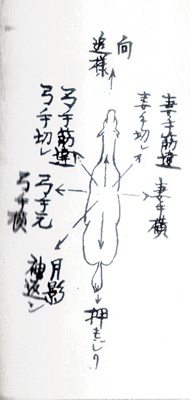 向
追様
妻手筋違
妻手切レ
妻手横
弓手筋違
弓手切レ
弓手元
弓手横
月影
神返シ
押もじり